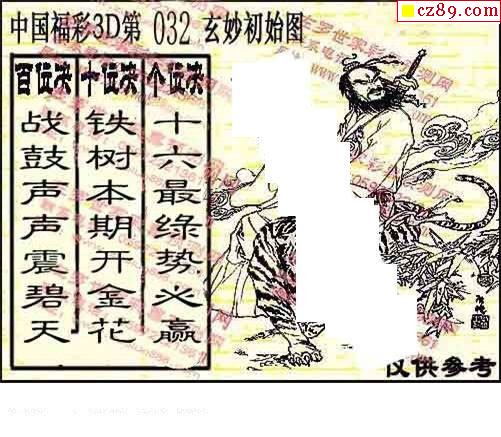 cz89.com
中国福彩3D第 032 玄妙初始图
百位决 十位决 个位决
战鼓声声震碧天
铁树本期开金花
十六最绿势必赢
仅供参考